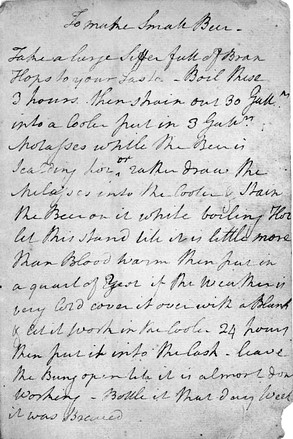 To make Small Beer -
Take a large Siffer full of Bran
Hops to your Taste - Boil these
3 hours. then strain out 30 Gall.n
into a Cooler put in 3 Gall.n
Molasses while the Beer is
Scalding hot or rather draw the
Molasses into the Cooler & Strain
the Beer on it while boiling Hot
let this stand till it is little more
than Blood warm then put in
a quart of Yest if the Weather is
very Cold cover it over with a Blank
& let it work in the Cooler 24 hours
then put it into the Cask - leave
the Bung open till it is almost don
working - Bottle it that day Week
it was Brewed